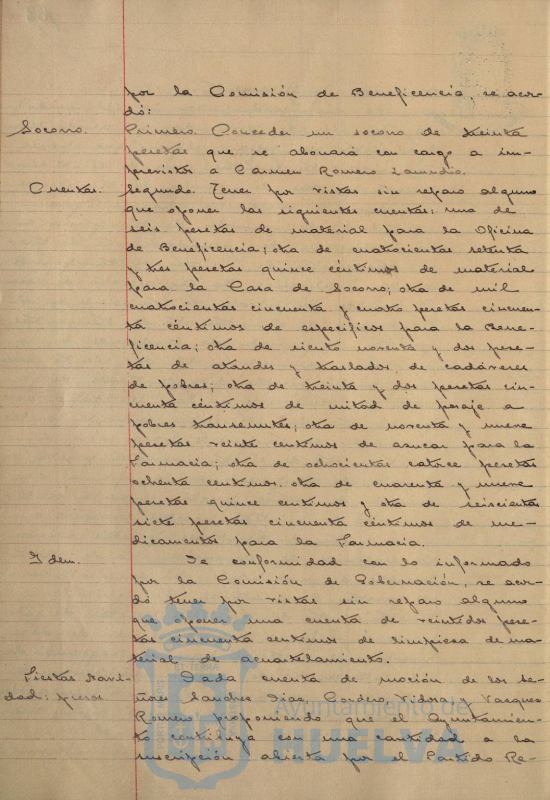 por la Comisión de Beneficencia, se acor-
dó:
Socorro. Primero. Conceder un socorro de treinta
pesetas que se abonará con cargo a im-
previstos a Carmen Romero
Cuentas. Segundo. Tener por vistas sin reparo alguno
que oponer las siguientes cuentas: una de
seis pesetas de material para la Oficina
de Beneficencia; otra de cuatrocientas setenta
y tres pesetas quince céntimos de material
para la Casa de Socorro; otra de mil
cuatrocientas cincuenta y cuatro pesetas cincuen-
ta céntimos de específicos para la Bene-
ficencia; otra de ciento noventa y dos pese-
tas de ataudes y traslados de cadáveres
de pobres; otra de treinta y dos pesetas cin-
cuenta céntimos de mitad de pasaje a
pobres transeuntes; otra de noventa y nueve
pesetas veinte centimos de azucar para la
Farmacia; otra de ochocientas catorce pesetas
ochenta centimos. otra de cuarenta y nueve
pesetas quince centimos y otra de seiscientas
siete pesetas cincuenta céntimos de me-
dicamentos para la Farmacia.
Idem. De conformidad con lo informado
por la Comisión de Gobernación, se acor-
dó tener por vistas sin reparo alguno
que oponer una cuenta de veintidos pese-
tas cincuenta centimos de limpieza de ma-
terial de acuartelamiento.
Fiestas Navi- Dada cuenta de moción de los Se-
dad: presos ñores Sanchez Diaz, Cordero, Vidosa y Vazquez
Romero proponiendo que el Ayuntamien-
to contribuya con una cantidad a la
suscripción abierta por el Partido Re-
Ayuntamiento de
HUELVA